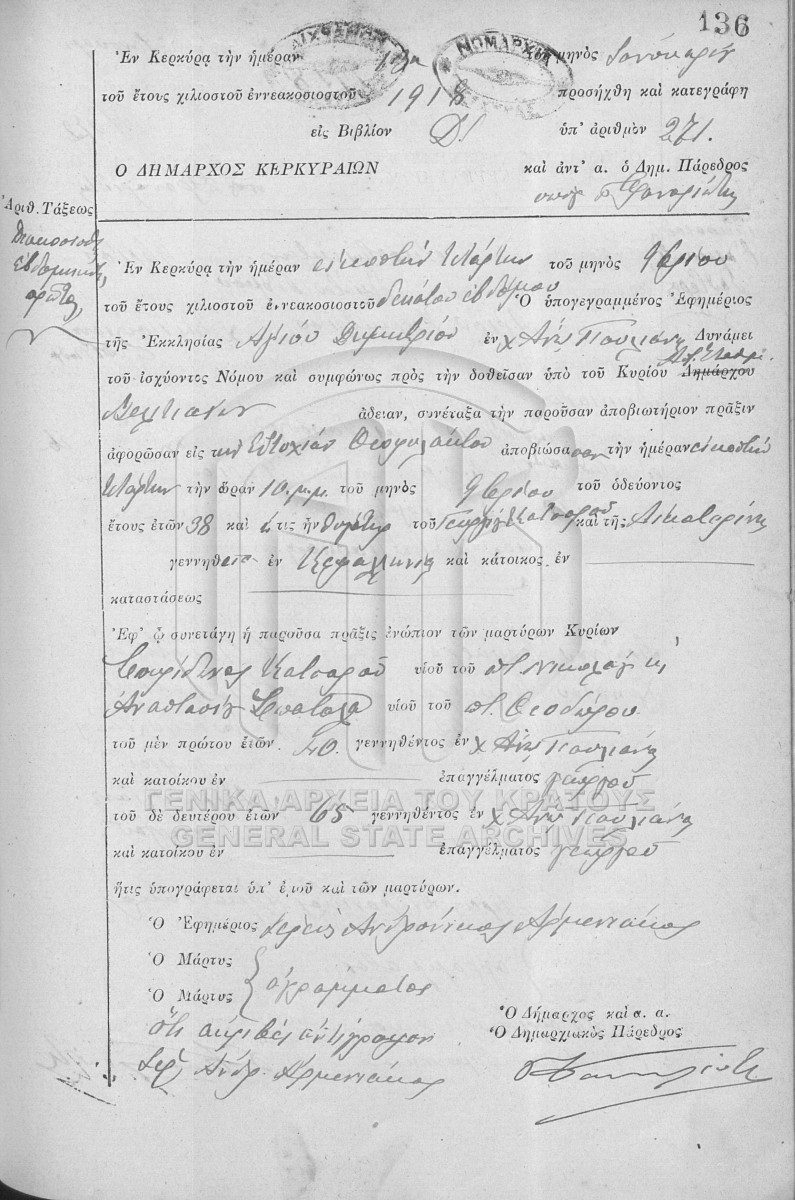 136
Ἐν Κερκύρᾳ τὴν ἡμέραν τοῦ μηνὸς Ἰανουαρίου
τοῦ ἔτους χιλιοστοῦ ἐννεακοσιοστοῦ 1918 προσήχθη καὶ κατεγράφη
ΝΟΜΑΡΧΙΑ
εἰς Βιβλίον Δ! ὑπ' ἀριθμὸν 271.
Ο ΔΗΜΑΡΧΟΣ ΚΕΡΚΥΡΑΙΩΝ καὶ ἀντ' α. ὁ Δημ. Πάρεδρος
Ἀριθ. Τάξεως
Διακοσιοστὴ
ἑβδομηκοστὴ
πρώτη
Ἐν Κερκύρᾳ τὴν ἡμέραν εἰκοστὴν τετάρτην τοῦ μηνὸς 9βρίου
τοῦ ἔτους χιλιοστοῦ ἐννεακοσιοστοῦ δεκάτου ἑβδόμου Ὁ ὑπογεγραμμένος Ἐφημέριος
τῆς Ἐκκλησίας Ἁγίου Δημητρίου ἐν χ Ἄνω Παυλιάνα Δυνάμει
τοῦ ἰσχύοντος Νόμου καὶ συμφώνως πρὸς τὴν δοθεῖσαν ὑπὸ τοῦ Κυρίου Δημάρχου
ἄδειαν, συνέταξα τὴν παροῦσαν ἀποβιωτήριον πρᾶξιν
ἀφορῶσαν εἰς τὴν Εὐτυχίαν Θεοφυλάκτου ἀποβιώσασαν τὴν ἡμέραν εἰκοστὴν
τετάρτην τὴν ὥραν 10 μ.μ. τοῦ μηνὸς 9βρίου τοῦ ὁδεύοντος
ἔτους ἐτῶν 38 καὶ ἥτις ἦν θυγάτηρ τοῦ Γεωργίου Κατσαροῦ καὶ τῆς Αἰκατερίνης
γεννηθεῖσα ἐν Κεφαλληνίᾳ καὶ κάτοικος ἐν
καταστάσεως
Ἐφ' ᾧ συνετάγη ἡ παροῦσα πρᾶξις ἐνώπιον τῶν μαρτύρων Κυρίων
Σπυρίδωνος Κατσαροῦ υἱοῦ τοῦ π. Νικολάου κ
Ἀναστασίου υἱοῦ τοῦ π. Θεοδώρου
τοῦ μὲν πρώτου ἐτῶν 40 γεννηθέντος ἐν χ Ἄνω Παυλιάνα
καὶ κατοίκου ἐν ἐπαγγέλματος γεωργοῦ
ΓΕΝΙΚΑ ΑΡΧΕΙΑ ΤΟΥ ΚΡΑΤΟΥΣ
τοῦ δὲ δευτέρου ἐτῶν 65 γεννηθέντος ἐν χ Ἄνω Παυλιάνα
GENERAL STATE ARCHIVES
καὶ κατοίκου ἐν ἐπαγγέλματος γεωργοῦ
ἥτις ὑπογράφεται ὑπ' ἐμοῦ καὶ τῶν μαρτύρων.
Ὁ Ἐφημέριος Ἱερεὺς Ἀνδρόνικος Ἀρμενιάκος
Ὁ Μάρτυς
Ὁ Μάρτυς ἀγράμματοι
Ὅτι ἀκριβὲς ἀντίγραφον
Ἱερ. Ἀνδρ. Ἀρμενιάκος
Ὁ Δήμαρχος καὶ α. α.
Ὁ Δημαρχιακὸς Πάρεδρος